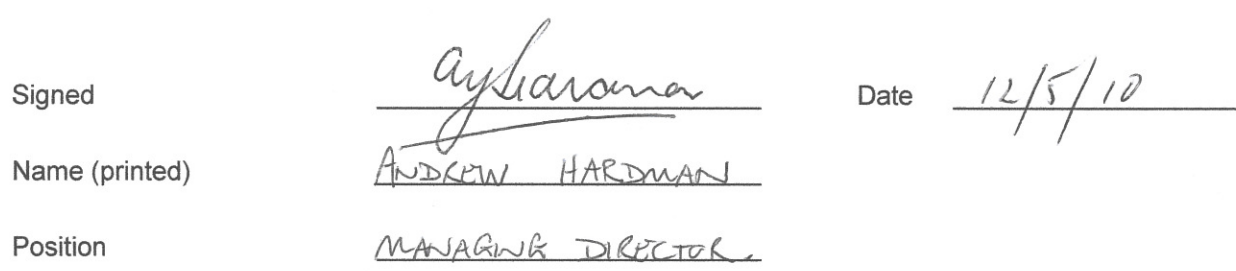 Signed Date 12/5/10
Name (printed) ANDREW HARDMAN
Position MANAGING DIRECTOR.